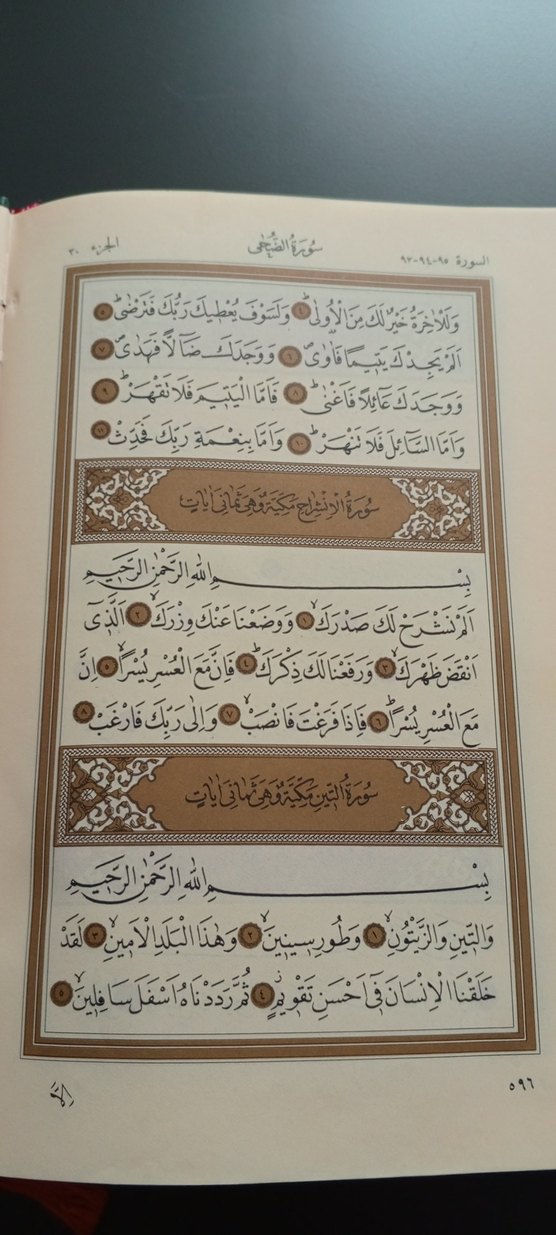 السورة ٩٥-٩٤-٩٣ سُورَةُ الضُّحٰى الجزء ٣٠
وَلَلْاٰخِرَةُ خَيْرٌ لَكَ مِنَ الْاُو۫لٰىۜ ٤ وَلَسَوْفَ يُعْط۪يكَ رَبُّكَ فَتَرْضٰىۜ ٥
اَلَمْ يَجِدْكَ يَت۪يمًا فَاٰوٰىۖ ٦ وَوَجَدَكَ ضَٓالًّا فَهَدٰىۖ ٧
وَوَجَدَكَ عَٓائِلًا فَاَغْنٰىۜ ٨ فَاَمَّا الْيَت۪يمَ فَلَا تَقْهَرْۜ ٩
وَاَمَّا السَّٓائِلَ فَلَا تَنْهَرْۜ ١٠ وَاَمَّا بِنِعْمَةِ رَبِّكَ فَحَدِّثْ ١١
سُورَةُ الْاِنْشِرَاحِ مَكِّيَّةٌ وَهِيَ ثَمَانِي اٰيَاتٍ
بِسْمِ اللّٰهِ الرَّحْمٰنِ الرَّح۪يمِ
اَلَمْ نَشْرَحْ لَكَ صَدْرَكَۙ ١ وَوَضَعْنَا عَنْكَ وِزْرَكَۙ ٢ اَلَّذ۪ٓي
اَنْقَضَ ظَهْرَكَۙ ٣ وَرَفَعْنَا لَكَ ذِكْرَكَۜ ٤ فَاِنَّ مَعَ الْعُسْرِ يُسْرًاۙ ٥ اِنَّ
مَعَ الْعُسْرِ يُسْرًاۜ ٦ فَاِذَا فَرَغْتَ فَانْصَبْۙ ٧ وَاِلٰى رَبِّكَ فَارْغَبْ ٨
سُورَةُ التّ۪ينِ مَكِّيَّةٌ وَهِيَ ثَمَانِي اٰيَاتٍ
بِسْمِ اللّٰهِ الرَّحْمٰنِ الرَّح۪يمِ
وَالتّ۪ينِ وَالزَّيْتُونِۙ ١ وَطُورِ س۪ين۪ينَۙ ٢ وَهٰذَا الْبَلَدِ الْاَم۪ينِۙ ٣ لَقَدْ
خَلَقْنَا الْاِنْسَانَ ف۪ٓي اَحْسَنِ تَقْو۪يمٍۘ ٤ ثُمَّ رَدَدْنَاهُ اَسْفَلَ سَافِل۪ينَۙ ٥
٥٩٦
اِلَّا